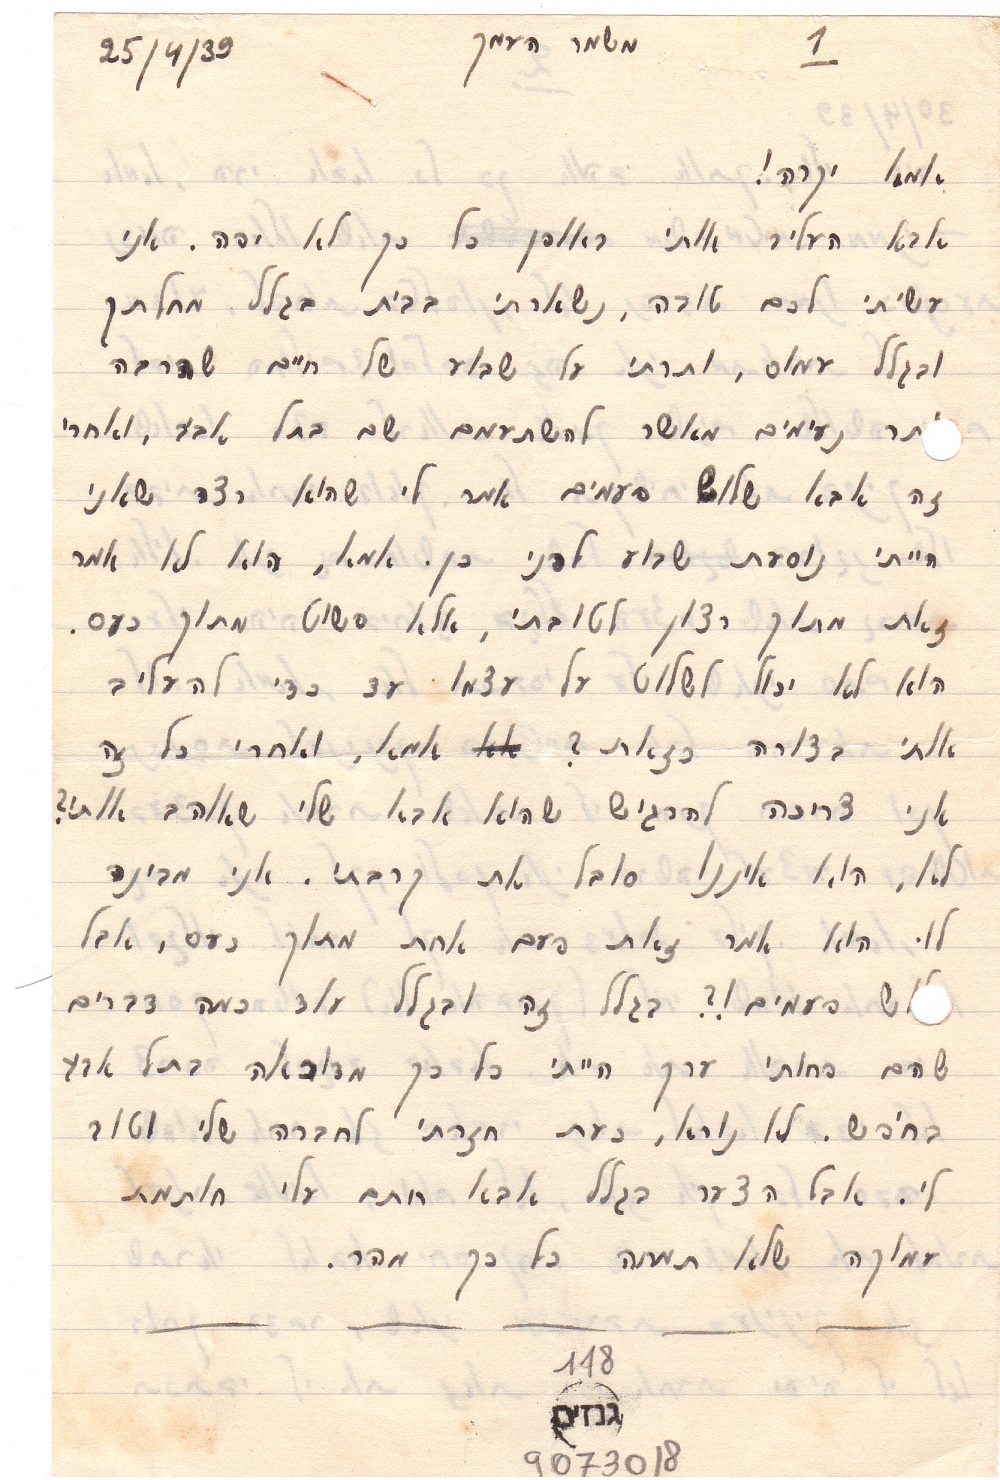 1 משמר העמק 25/4/39
אמא יקרה!
אבא העליב אותי באופן כל כך לא יפה. אני
עשיתי לכם טובה, נשארתי בבית בגלל מחלתך
ובגלל עמוס, ותרתי על שבוע של חיים שהרבה
יתר נעימים מאשר להשתעמם שם בתל אביב, ואחרי
זה אבא שלוש פעמים אמר לי שהוא רצה שאני
הייתי נוסעת שבוע לפני כן. אמא, הוא לא אמר
זאת מתוך רצון לטובתי, אלא פשוט מתוך כעס.
הוא לא יכול לשלוט על עצמו עד כדי להעליב
אותי בצורה כזאת? אמא, ואחרי כל זה
אני צריכה להרגיש שהוא אבא שלי שאוהב אותי?
לא, הוא איננו סובל את קרבתי. אני מבינה
לו. הוא אמר זאת פעם אחת מתוך כעס, אבל
שלוש פעמים!? בגלל זה ובגלל עוד כמה דברים
שהם פחותי ערך הייתי כל כך מדוכאה בתל אביב
בחפש. לא נורא, כעת חזרתי לחברה שלי וטוב
לי. אבל הצער בגלל אבא חתם עלי חותמת
עמוקה שלא תמחה כל כך מהר.
118
גנזים
90730/8